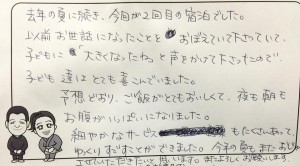 去年の夏に続き、今回が2回目の宿泊でした。
以前お世話になったことをおぼえていて下さっていて、
子どもに「大きくなったねっ」と声をかけて下さったので、
子ども達はとても喜こんでいました。
予想どおり、ご飯がとてもおいしくて、夜も朝も
お腹がいっぱいになりました。
細やかなサービスもたくさんあって、
ゆっくりすごすことができました。今年の夏もまたおじゃま
させていただきたいと思います。またよろしくお願いします。